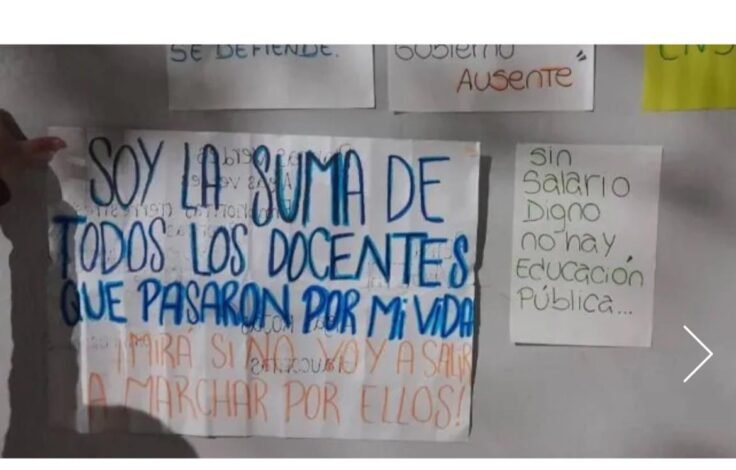 SE DEFIENDE.
Gobierno
Ausente
SOY LA SUMA DE
TODOS LOS DOCENTES
QUE PASARON POR Mi ViDA
¡MIRÁ SI NO VOY A SALIR
A MARCHAR POR ELLOS!
sin
Salario
Digno
no hay
Educación
Pública...